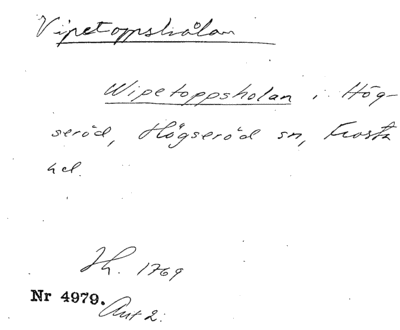 Vipetoppshålan
Wipetoppsholan i Hög-
seröd, Högseröd sn, Frosta
hd.
Jh. 1769
Nr 4979.
Ant 2.